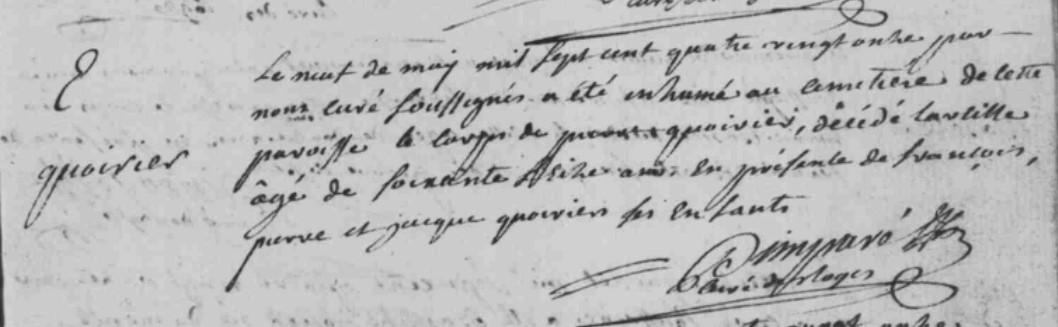 E
quoirier
Le neuf de may mil sept cent quatre vingt onze par
nous curé soussignés a été inhumé au cemetiere de cette
paroisse le corps de quoirier, décédé la veille
âgé de soixante seize ans. En présente de françois,
pierre et jacque quoiriers ses Enfants
Dimparé
Curé